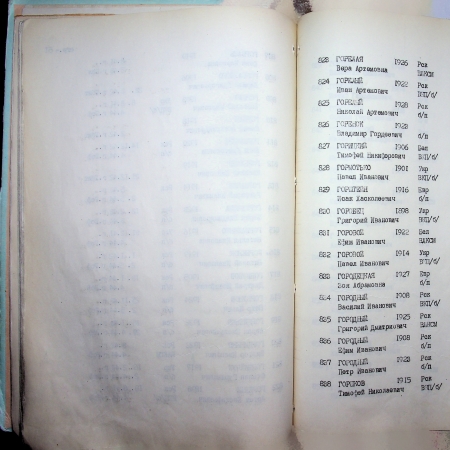 823 ГОРЕЛАЯ 1926 Рск
Вера Артемовна ВЛКСМ
824 ГОРЕЛЫЙ 1922 Рск
Иван Артемович ВКП/б/
825 ГОРЕЛЫЙ 1928 Рск
Николай Артемович б/п
826 ГОРЕНОК 1928
Владимир Гордеевич б/п
827 ГОРИЦКИЙ 1906 Бел
Тимофей Никифорович ВКП/б/
828 ГОРМОТЬКО 1901 Укр
Павел Иванович ВКП/б/
829 1916 Евр
б/п
830 1898 Укр
Григорий Иванович ВКП/б/
831 ГОРОВОЙ 1922 Бел
Ефим Иванович ВЛКСМ
832 ГОРОВОЙ 1914 Укр
Павел Иванович ВКП/б/
833 ГОРОДЕЦКАЯ 1927 Евр
Зоя Абрамовна б/п
834 ГОРОДНЫЙ 1908 Рск
Василий Иванович ВКП/б/
835 ГОРОДНЫЙ 1925 Рск
Григорий Дмитриевич ВЛКСМ
836 ГОРОДНЫЙ 1908 Рск
Ефим Иванович б/п
837 ГОРОДНЫЙ 1923 Рск
Петр Иванович б/п
838 ГОРОХОВ 1915 Рск
Тимофей Николаевич ВКП/б/